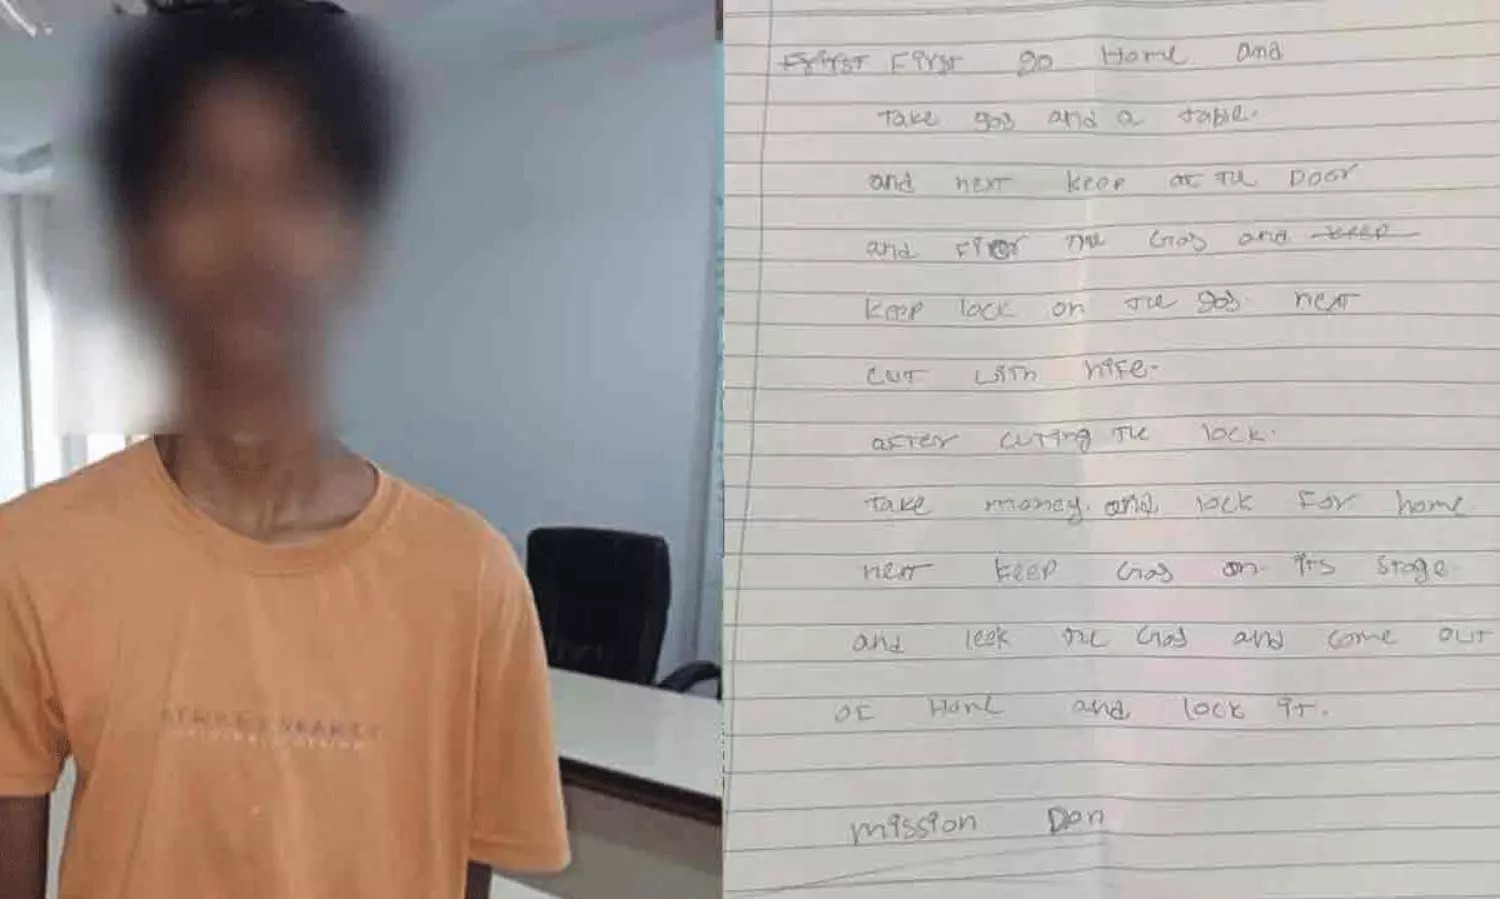 First First go Home and
Take gas and a table.
and next keep at the Door
and Fier the Gas and keep
keep lock on the gas. next
cut with nife.
after cuting the lock.
Take money. and lock for home
next keep Gas on its stage
and leek the Gas and come out
of Home and lock it.
mission Don